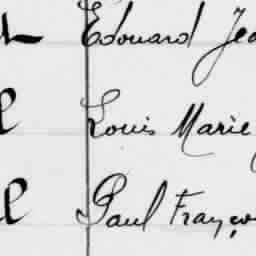 Edouard Jea
Louis Marie
Paul Franço